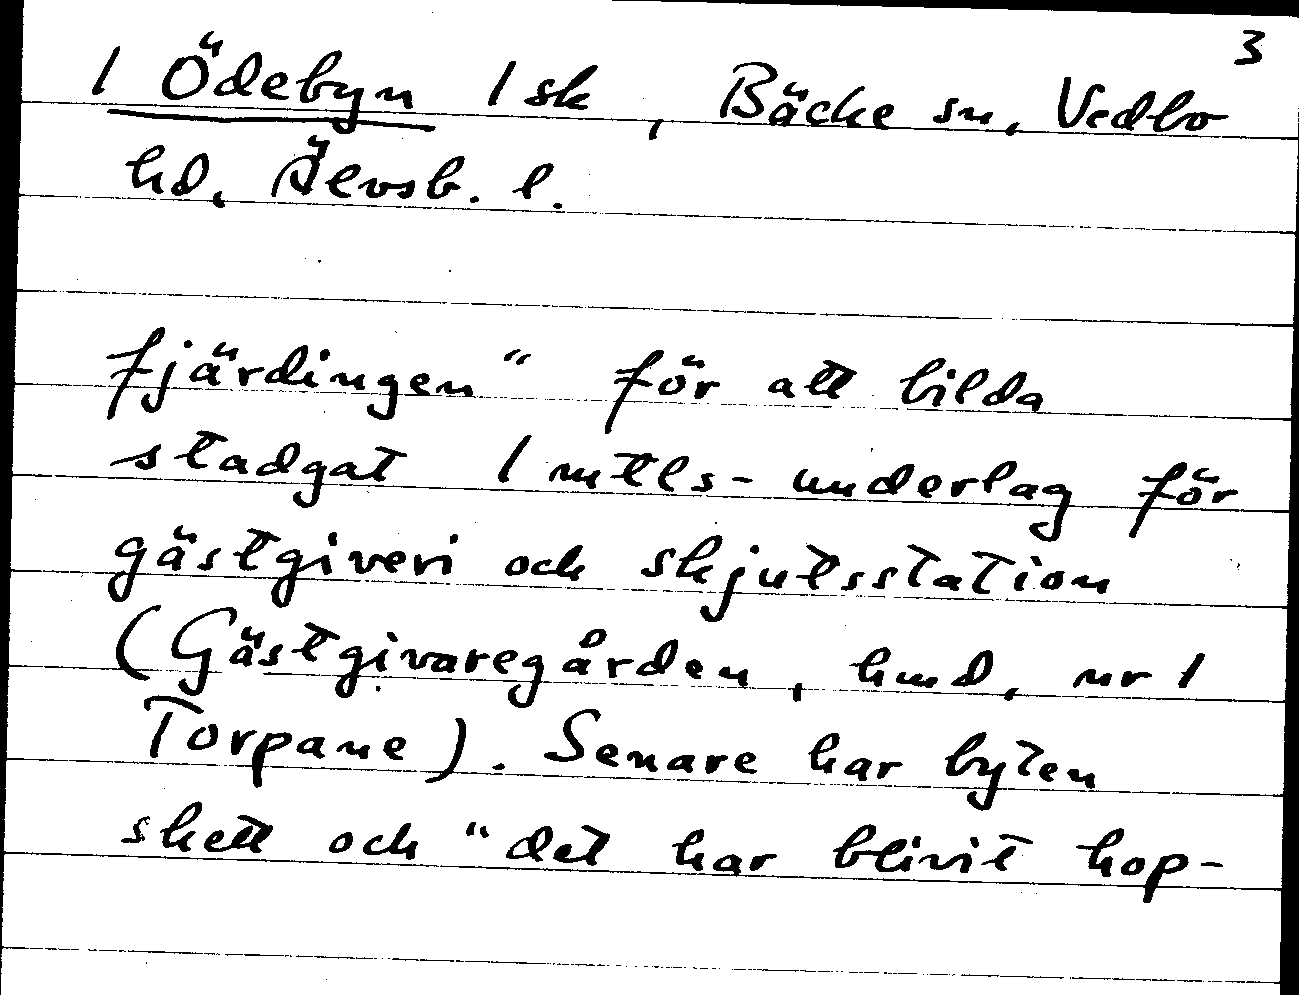 3
1 Ödebyn 1 sk, Bäcke sn, Vedbo
hd, Älvsb. l.
fjärdingen" för att bilda
stadgat 1 mtls- underlag för
gästgiveri och skjutsstation
(Gästgivaregården, hmd, nr 1
Torpane). Senare har byten
skett och "det har blivit hop-